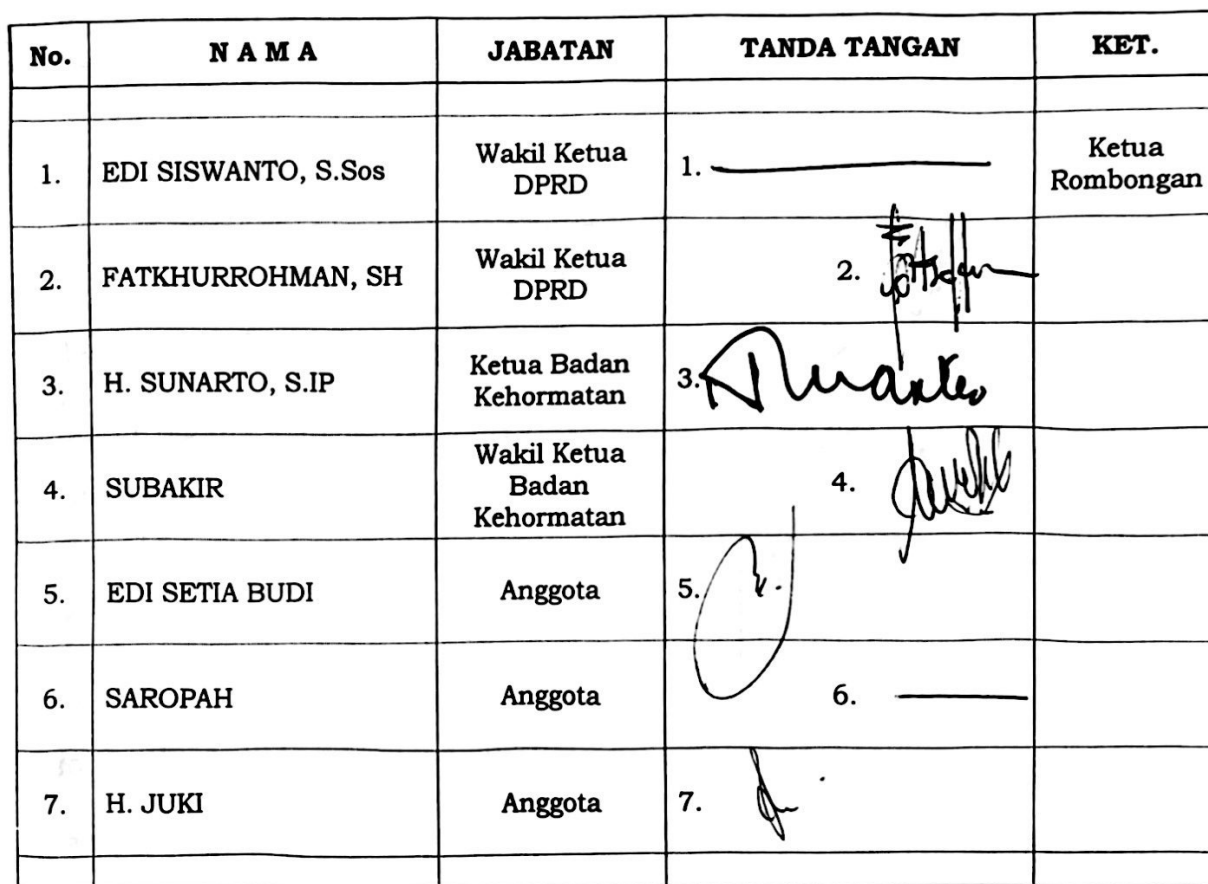 No. N A M A JABATAN TANDA TANGAN KET.
1. EDI SISWANTO, S.Sos Wakil Ketua DPRD 1. Ketua Rombongan
2. FATKHURROHMAN, SH Wakil Ketua DPRD 2.
3. H. SUNARTO, S.IP Ketua Badan Kehormatan 3.
4. SUBAKIR Wakil Ketua Badan Kehormatan 4.
5. EDI SETIA BUDI Anggota 5.
6. SAROPAH Anggota 6.
7. H. JUKI Anggota 7.